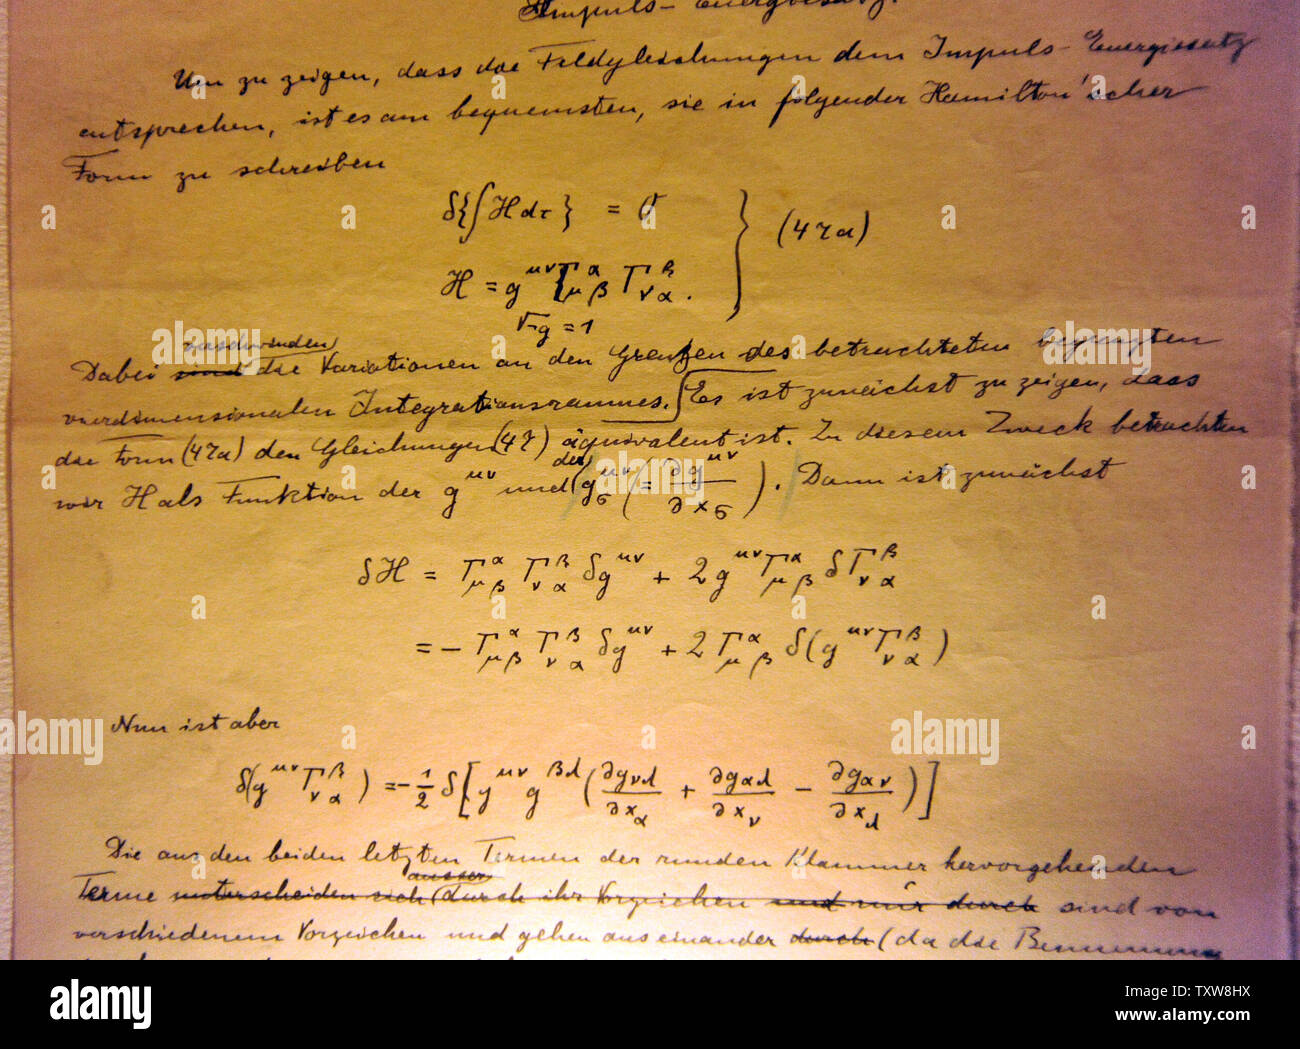 Impuls-Energiesatz.
Um zu zeigen, dass die Feldgleichungen dem Impuls-Energiesatz
entsprechen, ist es am bequemsten, sie in folgender Hamilton'scher
Form zu schreiben
δ{∫H dτ} = 0
} (47a)
H = g^{μν} Γ^α_{μβ} Γ^β_{να}.
√-g = 1
verschwinden
Dabei ~~sind~~ die Variationen an den Grenzen des betrachteten begrenzten
vierdimensionalen Integrationsraumes. Es ist zunächst zu zeigen, dass
die Form (47a) den Gleichungen (47) äquivalent ist. Zu diesem Zweck betrachten
wir H als Funktion der g^{μν} und der g^{μν}_σ (= ∂g^{μν}/∂x_σ). Dann ist zunächst
δH = Γ^α_{μβ} Γ^β_{να} δg^{μν} + 2 g^{μν} Γ^α_{μβ} δΓ^β_{να}
= - Γ^α_{μβ} Γ^β_{να} δg^{μν} + 2 Γ^α_{μβ} δ(g^{μν} Γ^β_{να})
Nun ist aber
δ(g^{μν} Γ^β_{να}) = -1/2 δ[g^{μν} g^{βλ} (∂g_{νλ}/∂x_α + ∂g_{αλ}/∂x_ν - ∂g_{αν}/∂x_λ)]
Die aus den beiden letzten Termen der runden Klammer hervorgehenden
ausser
Terme ~~unterscheiden sich~~ (~~durch ihr Vorzeichen und nur durch~~ sind von
verschiedenem Vorzeichen und gehen auseinander ~~durch~~ (da die Benennung
alamy
Image ID: TXW8HX
www.alamy.com